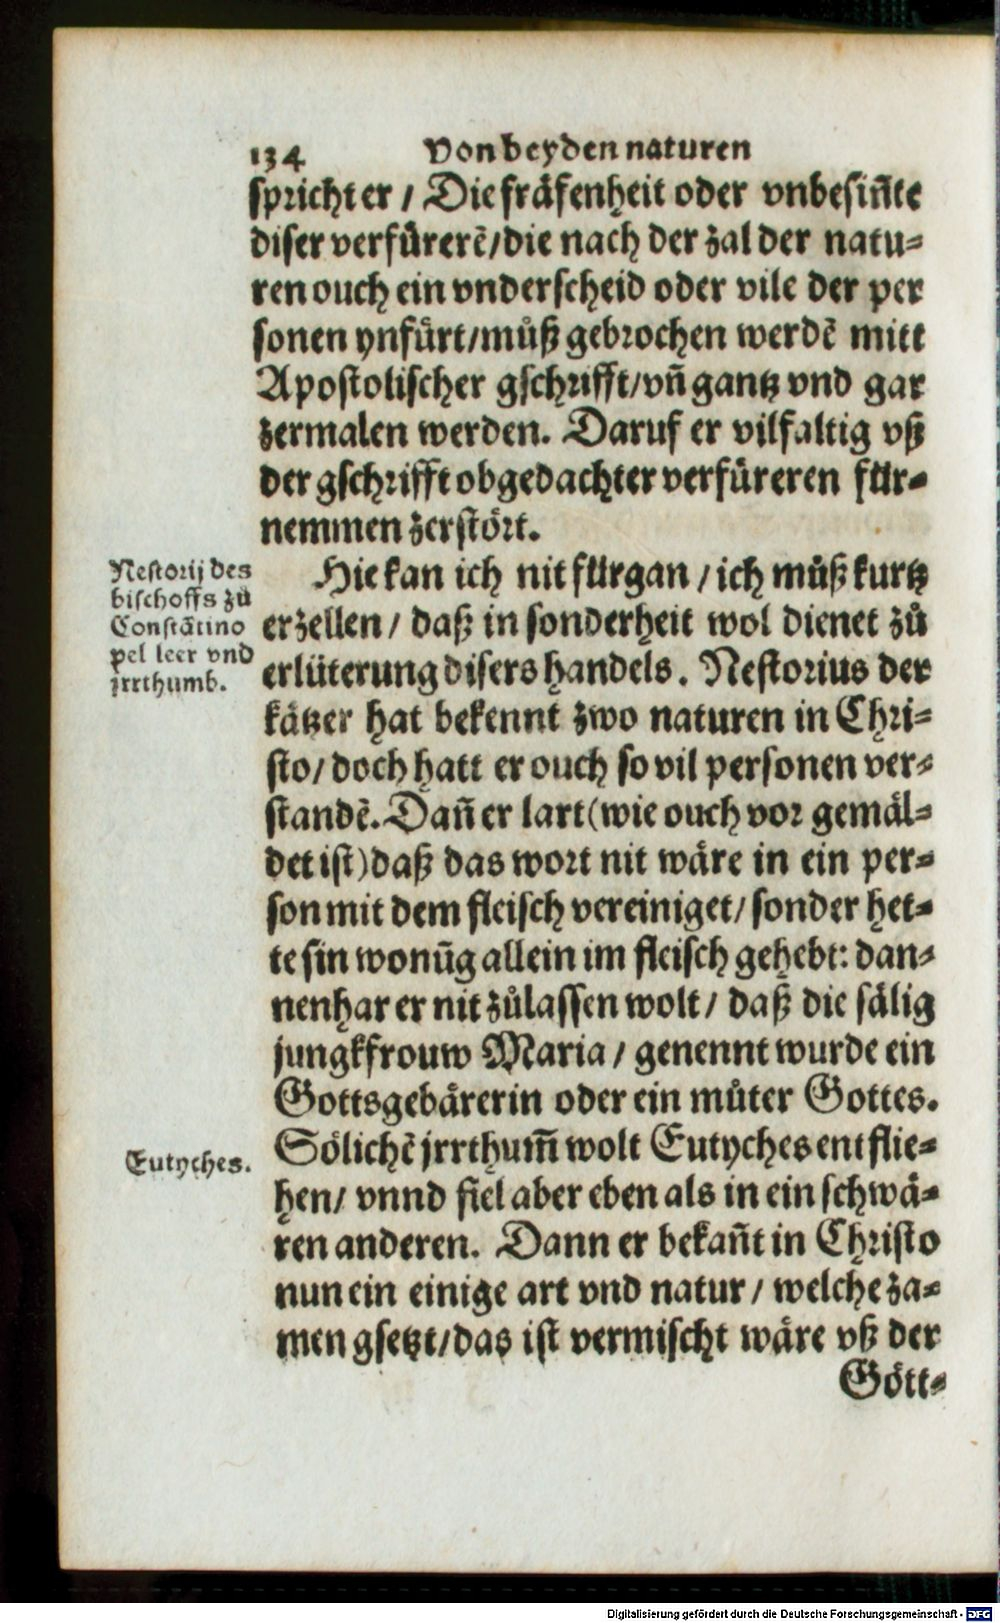 134 Von beyden naturen
spricht er / Die fräfenheit oder vnbesiñte
diser verfürerē/die nach der zal der natu-
ren ouch ein vnderscheid oder vile der per
sonen ynfürt/můß gebrochen werdē mitt
Apostolischer gschrifft/vñ gantz vnd gar
zermalen werden. Daruf er vilfaltig vß
der gschrifft obgedachter verfüreren für-
nemmen zerstört.
Nestorij des
bischoffs zů
Constātino
pel leer vnd
jrrthumb.
Hie kan ich nit fürgan / ich můß kurtz
erzellen / daß in sonderheit wol dienet zů
erlüterung disers handels. Nestorius der
kätzer hat bekennt zwo naturen in Chri-
sto/ doch hatt er ouch so vil personen ver-
standē. Dañ er lart (wie ouch vor gemäl-
det ist) daß das wort nit wäre in ein per-
son mit dem fleisch vereiniget/ sonder het-
te sin wonūg allein im fleisch gehebt: dan-
nenhar er nit zůlassen wolt / daß die sälig
jungkfrouw Maria / genennt wurde ein
Gottsgebärerin oder ein můter Gottes.
Eutyches.
Sölichē jrrthum̃ wolt Eutyches entflie-
hen/ vnnd fiel aber eben als in ein schwä-
ren anderen. Dann er bekañt in Christo
nun ein einige art vnd natur / welche za-
men gsetzt/das ist vermischt wäre vß der
Gött-
Digitalisierung gefördert durch die Deutsche Forschungsgemeinschaft - DFG